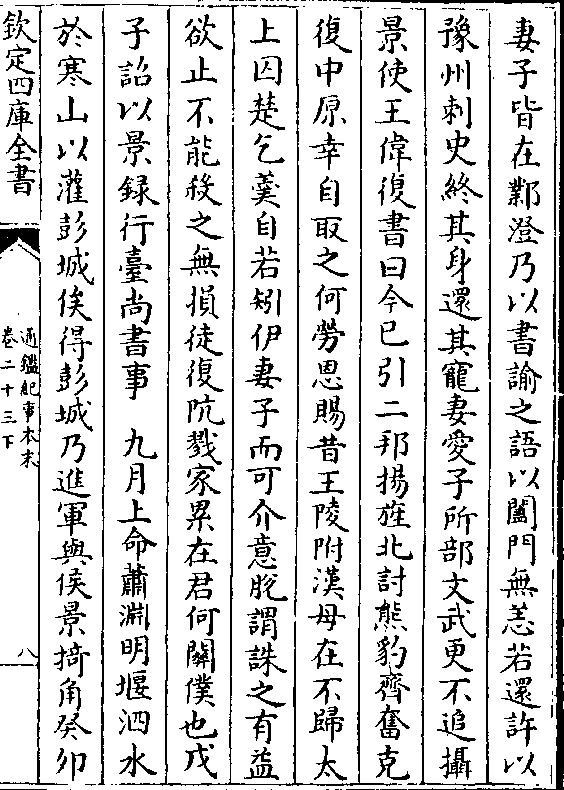 妻子皆在鄴澄乃以書諭之語以闔門無恙若還許以
豫州刺史終其身還其寵妻愛子所部文武更不追攝
景使王偉復書曰今已引二邦揚旌北討熊豹齊奮克
復中原幸自取之何勞恩賜昔王陵附漢母在不歸太
上囚楚乞羹自若矧伊妻子而可介意脫謂誅之有益
欲止不能殺之無損徒復阬戮家累在君何關僕也戊
子詔以景録行臺尚書事　九月上命蕭淵明堰泗水
於寒山以灌彭城俟得彭城乃進軍與侯景掎角癸卯
欽定四庫全書
通鑑紀事本末
卷二十三下
八